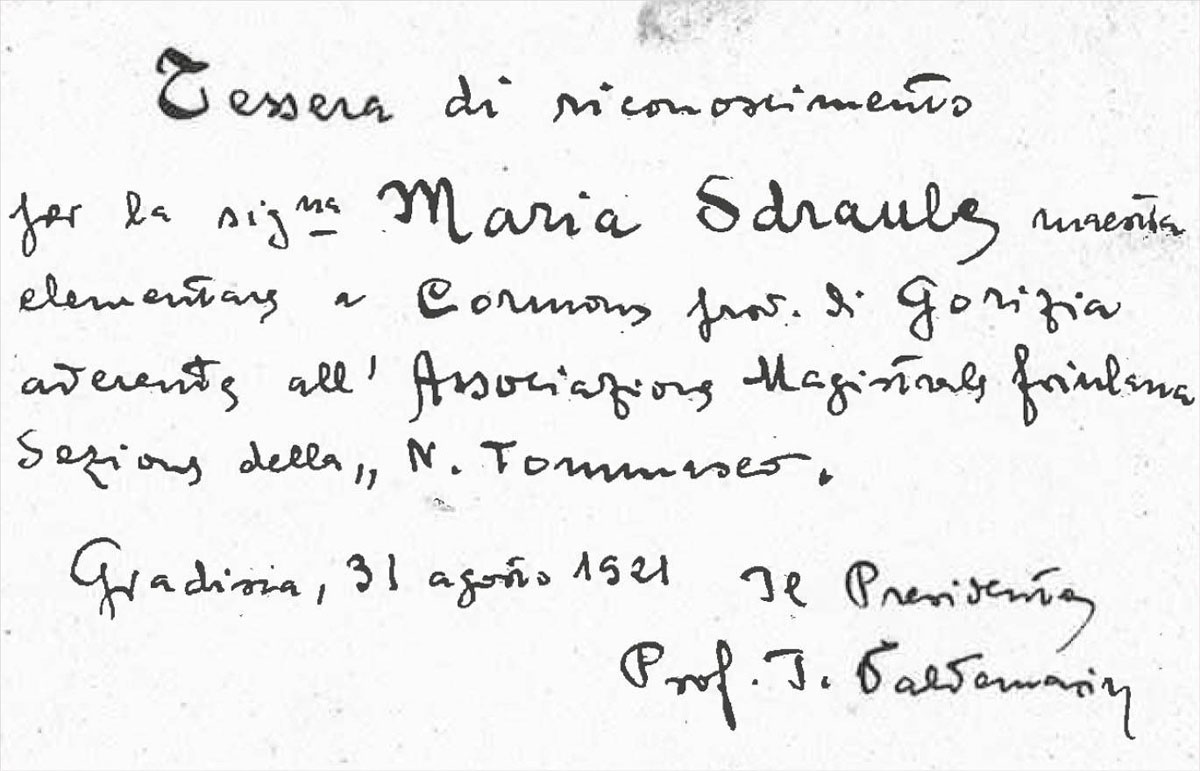 Tessera di riconoscimento
per la sig.na Maria Sdraule maestra
elementare a Cormons prov. di Gorizia
aderente all' Associazione Magistrale friulana
Sezione della „ N. Tommaseo.
Gradisca, 31 agosto 1921 Il Presidente
Prof. I.